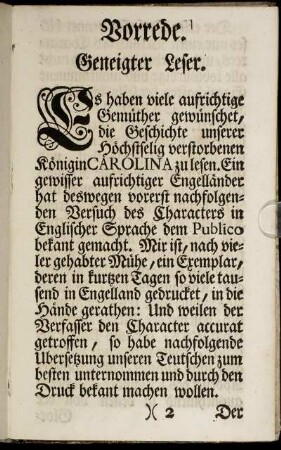 Vorrede.
Geneigter Leser.
Es haben viele aufrichtige
Gemüther gewünschet,
die Geschichte unserer
Höchstselig verstorbenen
Königin CAROLINA zu lesen. Ein
gewisser aufrichtiger Engelländer
hat deswegen vorerst nachfolgen-
den Versuch des Characters in
Englischer Sprache dem Publico
bekant gemacht. Mir ist, nach vie-
ler gehabter Mühe, ein Exemplar,
deren in kurtzen Tagen so viele tau-
send in Engelland gedrucket, in die
Hände gerathen: Und weilen der
Verfasser den Character accurat
getroffen, so habe nachfolgende
Ubersetzung unseren Teutschen zum
besten unternommen und durch den
Druck bekant machen wollen.
)( 2 Der